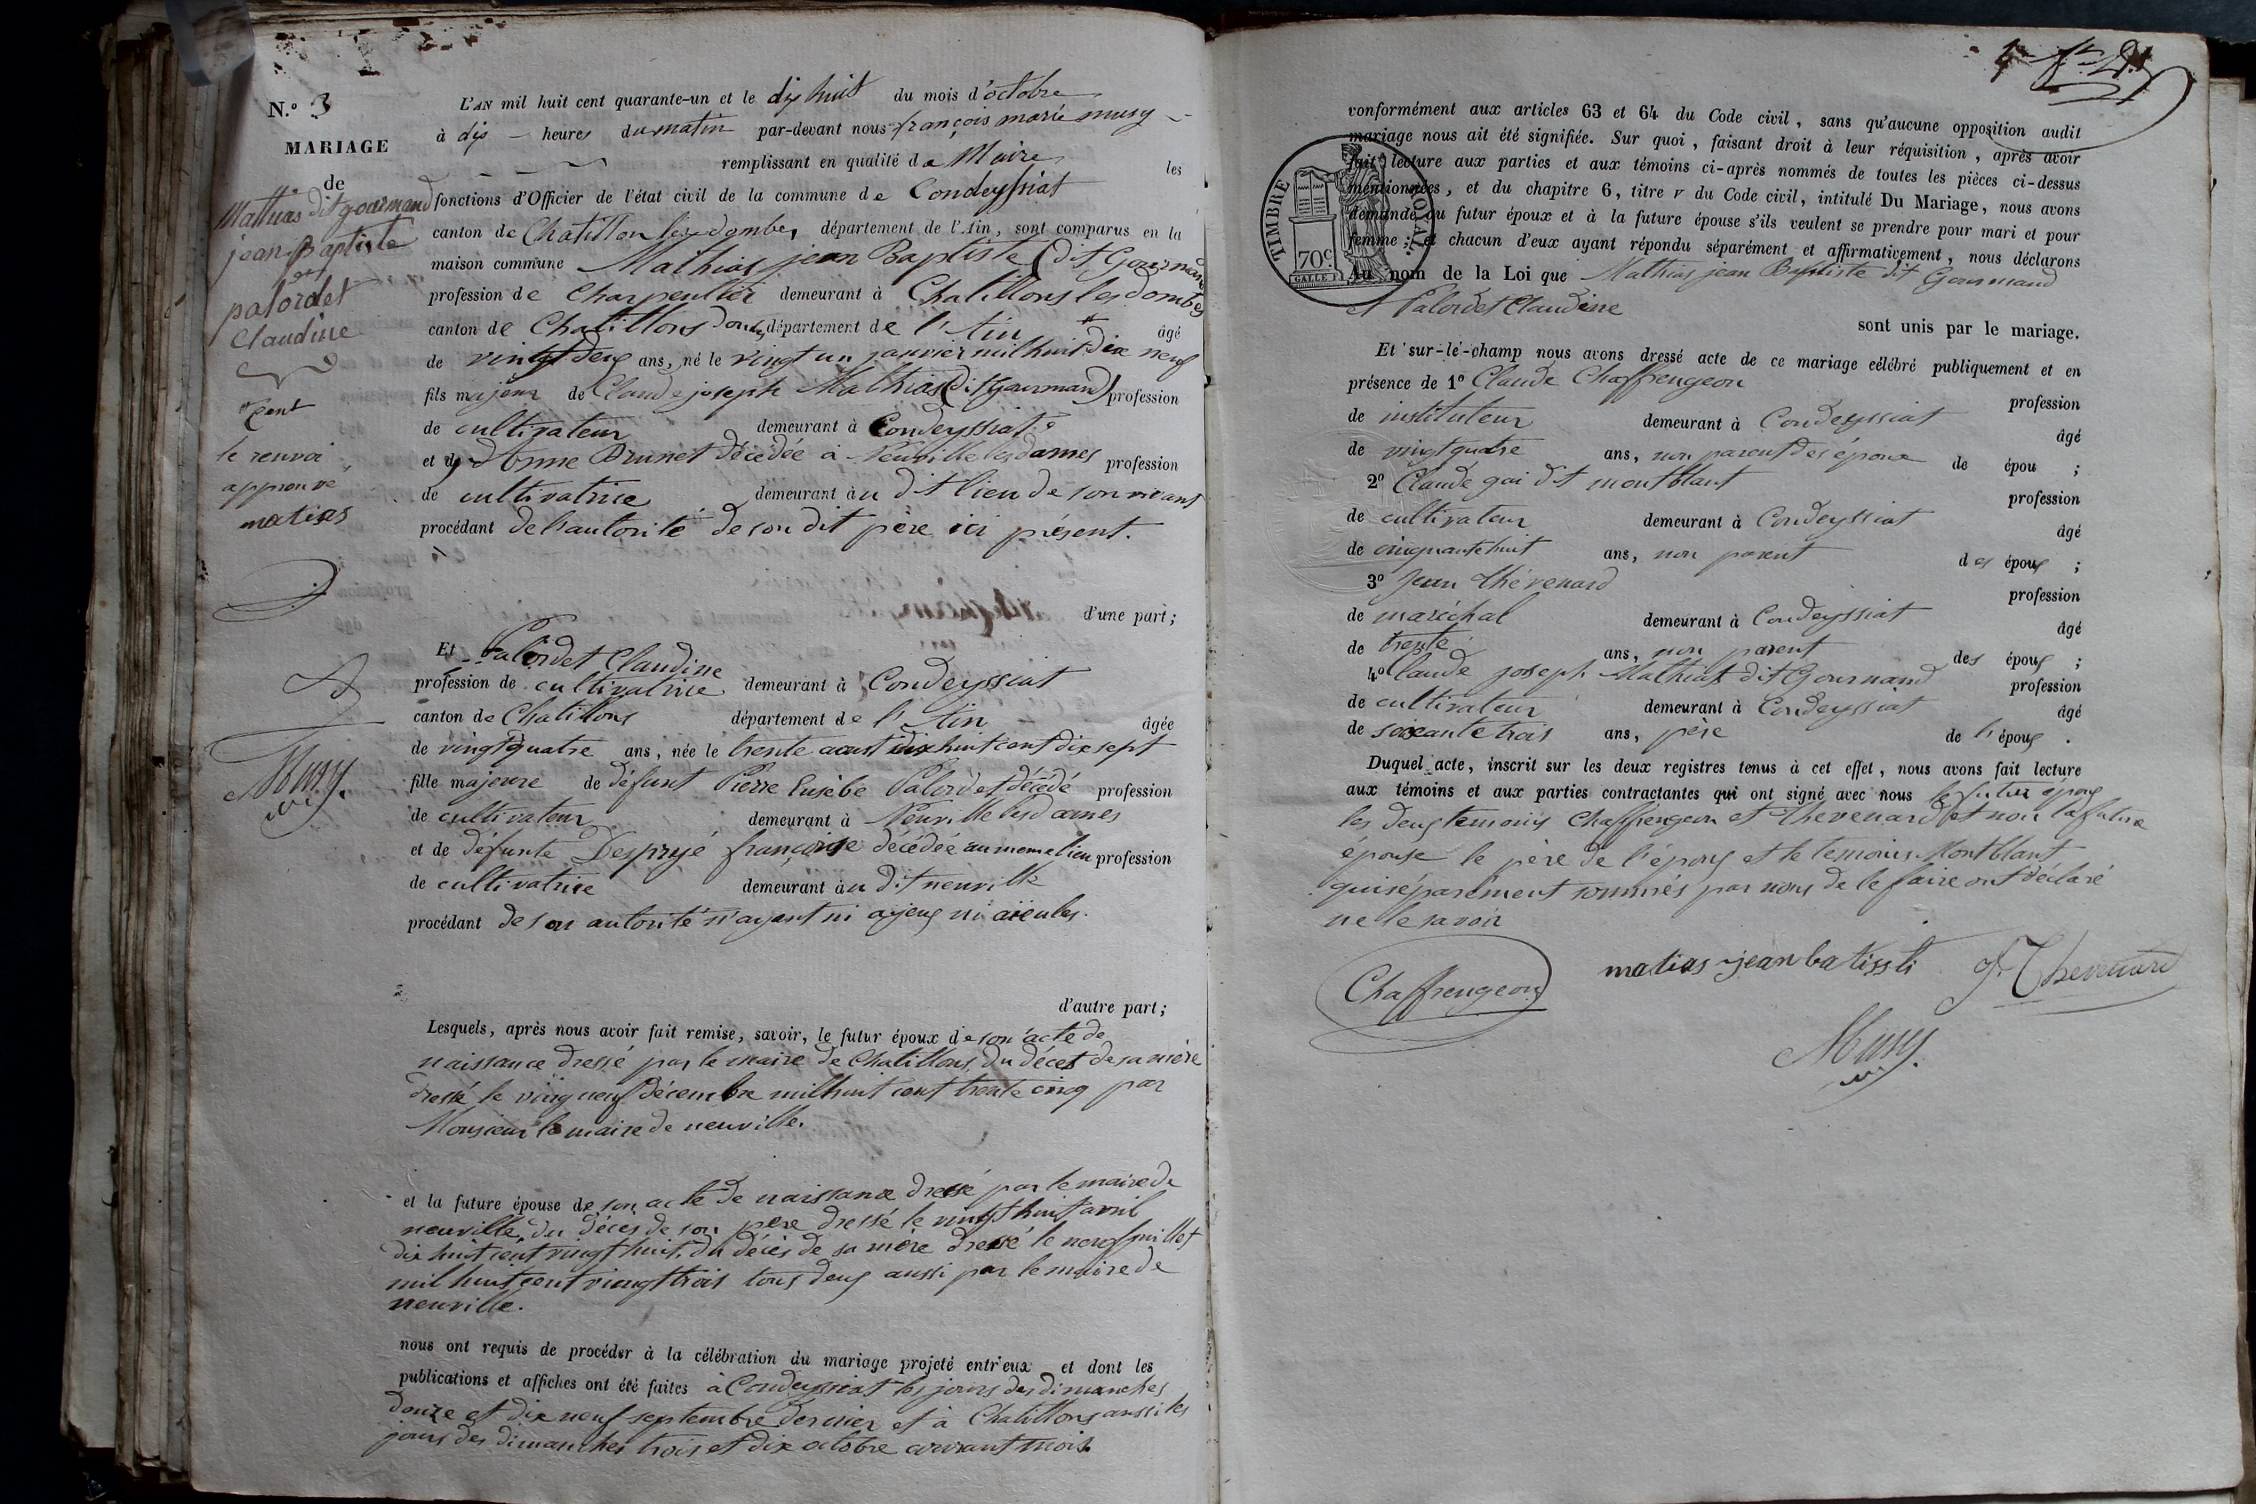 N.o 3
MARIAGE
de
Mathias dit gourmand
jean Baptiste
et
palordet
Claudine
# Cent
le renvoi
approuvé
matias
Musy.
L'AN mil huit cent quarante-un et le dix huit du mois d'octobre
à dix heures du matin par-devant nous françois marie musy
remplissant en qualité de Maire les
fonctions d'Officier de l'état civil de la commune de Condeyssiat
canton de Chatillon les dombes, département de l'Ain, sont comparus en la
maison commune Mathias jean Baptiste (dit Gourmand
profession de Charpentier demeurant à Chatillons les dombes
canton de Chatillons Dombes, département de l'Ain âgé
de vingt deux ans, né le vingt un janvier mil huit # dix neuf
fils majeur de Claude joseph Mathias (dit Gourmand) profession
de cultivateur demeurant à Condeyssiat
et d'Anne Brunet Décédée à Neuville les dames profession
de cultivatrice demeurant au dt lieu de son vivant
procédant de l'autorité de son dit père ici présent.
d'une part;
Et Palordet Claudine
profession de cultivatrice demeurant à Condeyssiat
canton de Chatillons département de l'Ain âgée
de vingt quatre ans, née le trente aoust dix huit cent dix sept
fille majeure de défunt Pierre Eusèbe Palordet décédé profession
de cultivateur demeurant à Neuville les dames
et de défunte Despryé françoise décédée au meme lieu profession
de cultivatrice demeurant au dit neuville
procédant de son autorité n'ayant ni ayeux ni aïeules.
d'autre part;
Lesquels, après nous avoir fait remise, savoir, le futur époux de son acte de
naissance dressé par le maire de Chatillons, du décet de sa mère
dressé le vingt neuf décembre mil huit cent trente cinq par
Monsieur le maire de neuville.
et la future épouse de son acte de naissance dressé par le maire de
neuville, du décès de son père dressé le vingt huit avril
dix huit cent vingt huit, du décès de sa mère dressé le neuf juillet
mil huit cent vingt trois tous deux aussi par le maire de
neuville.
nous ont requis de procéder à la célébration du mariage projeté entr'eux et dont les
publications et affiches ont été faites à Condeyssiat les jours des dimanches
douze et dix neuf septembre dernier et à Chatillons aussi les
jours des dimanches trois et dix octobre courant mois.
conformément aux articles 63 et 64 du Code civil, sans qu'aucune opposition audit
mariage nous ait été signifiée. Sur quoi, faisant droit à leur réquisition, après avoir
fait lecture aux parties et aux témoins ci-après nommés de toutes les pièces ci-dessus
mentionnées, et du chapitre 6, titre v du Code civil, intitulé Du Mariage, nous avons
demandé au futur époux et à la future épouse s'ils veulent se prendre pour mari et pour
femme; et chacun d'eux ayant répondu séparément et affirmativement, nous déclarons
Au nom de la Loi que Mathias jean Baptiste dit Gourmand
et Palordet Claudine
sont unis par le mariage.
TIMBRE ROYAL.
70c
Et sur-le-champ nous avons dressé acte de ce mariage célébré publiquement et en
présence de 1o Claude Chaffrengeon profession
de instituteur demeurant à Condeyssiat âgé
de vingt quatre ans, non parent des époux de épou ;
2o Claude gai dit montblant profession
de cultivateur demeurant à Condeyssiat âgé
de cinquante huit ans, non parent des époux ;
3o Jean thévenard profession
de maréchal demeurant à Condeyssiat âgé
de trente ans, non parent des époux ;
4o Claude joseph Mathias dit Gournand profession
de cultivateur demeurant à Condeyssiat âgé
de soixante trois ans, père de l'époux .
Duquel acte, inscrit sur les deux registres tenus à cet effet, nous avons fait lecture
aux témoins et aux parties contractantes qui ont signé avec nous le futur époux
les deux temoins Chaffrengeon et Thevenard et non la future
épouse le père de l'époux et le temoins Montblant
qui séparément sommés par nous de le faire ont déclaré
ne le savoir
Chaffrengeon matias jean batissti Jn Thevenard
Musy.